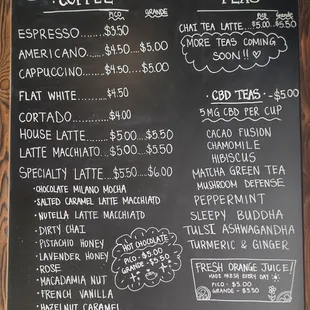 COFFEE
PICO GRANDE
ESPRESSO........$3.50
AMERICANO....$4.50....$5.00
CAPPUCCINO.....$4.50....$5.00
FLAT WHITE.......$4.50
CORTADO.........$4.00
HOUSE LATTE.......$5.00....$5.50
LATTE MACCHIATO...$5.00....$5.50
SPECIALTY LATTE...$5.50....$6.00
• CHOCOLATE MILANO MOCHA
• SALTED CARAMEL LATTE MACCHIATO
• NUTELLA LATTE MACCHIATO
• DIRTY CHAI
• PISTACHIO HONEY
• LAVENDER HONEY
• ROSE
• MACADAMIA NUT
• FRENCH VANILLA
• HAZELNUT CARAMEL
HOT CHOCOLATE
PICO - $5.00
GRANDE - $5.50
TEAS
PICO GRANDE
CHAI TEA LATTE...$5.00..$5.50
MORE TEAS COMING
SOON!! ♡
• CBD TEAS • -$5.00
5MG CBD PER CUP
CACAO FUSION
CHAMOMILE
HIBISCUS
MATCHA GREEN TEA
MUSHROOM DEFENSE
PEPPERMINT
SLEEPY BUDDHA
TULSI ASHWAGANDHA
TURMERIC & GINGER
FRESH ORANGE JUICE!
MADE FRESH EVERY DAY
PICO - $5.00
GRANDE - $5.50